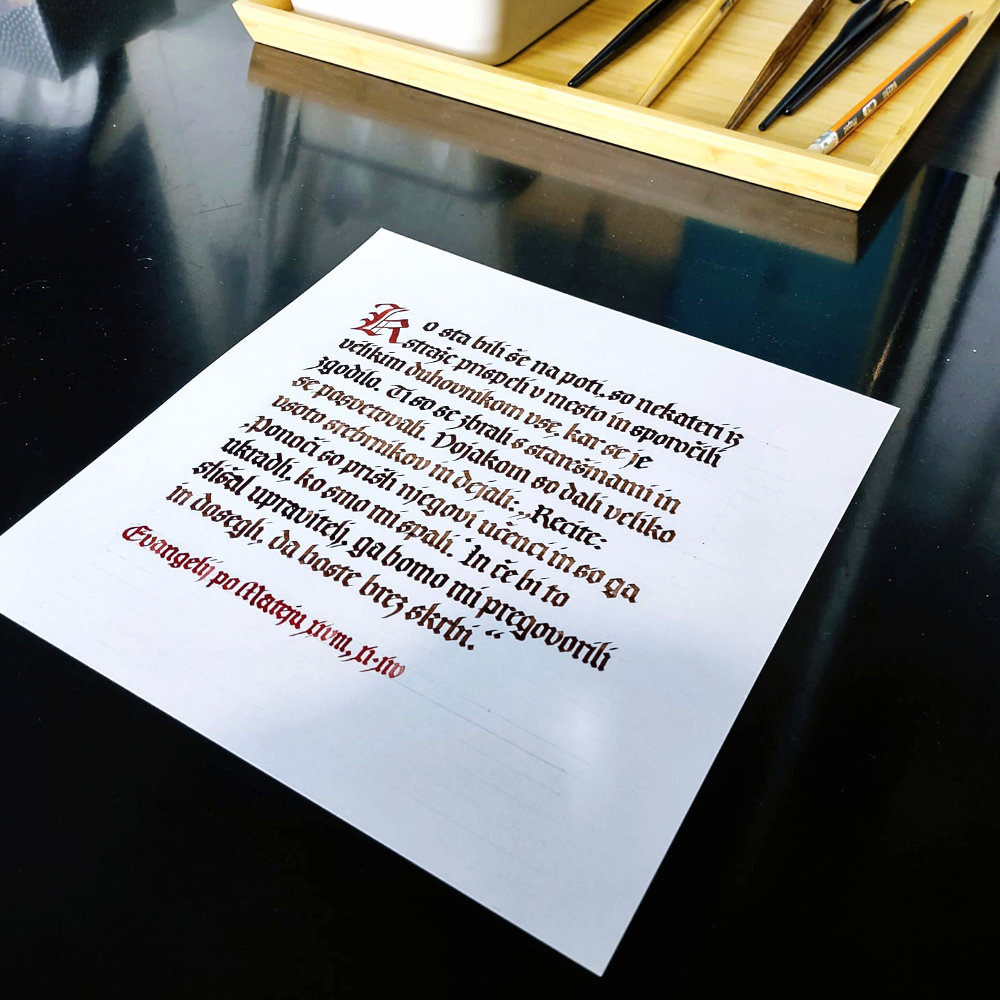 Ko sta bili še na poti, so nekateri iz
straže prispeli v mesto in sporočili
velikim duhovnikom vse, kar se je
zgodilo. Ti so se zbrali s starešinami in
se posvetovali. Vojakom so dali veliko
vsoto srebrnikov in dejali: „Recite:
‚Ponoči so prišli njegovi učenci in so ga
ukradli, ko smo mi spali.‘ In če bi to
slišal upravitelj, ga bomo mi pregovorili
in dosegli, da boste brez skrbi.“
Evangelij po Mateju